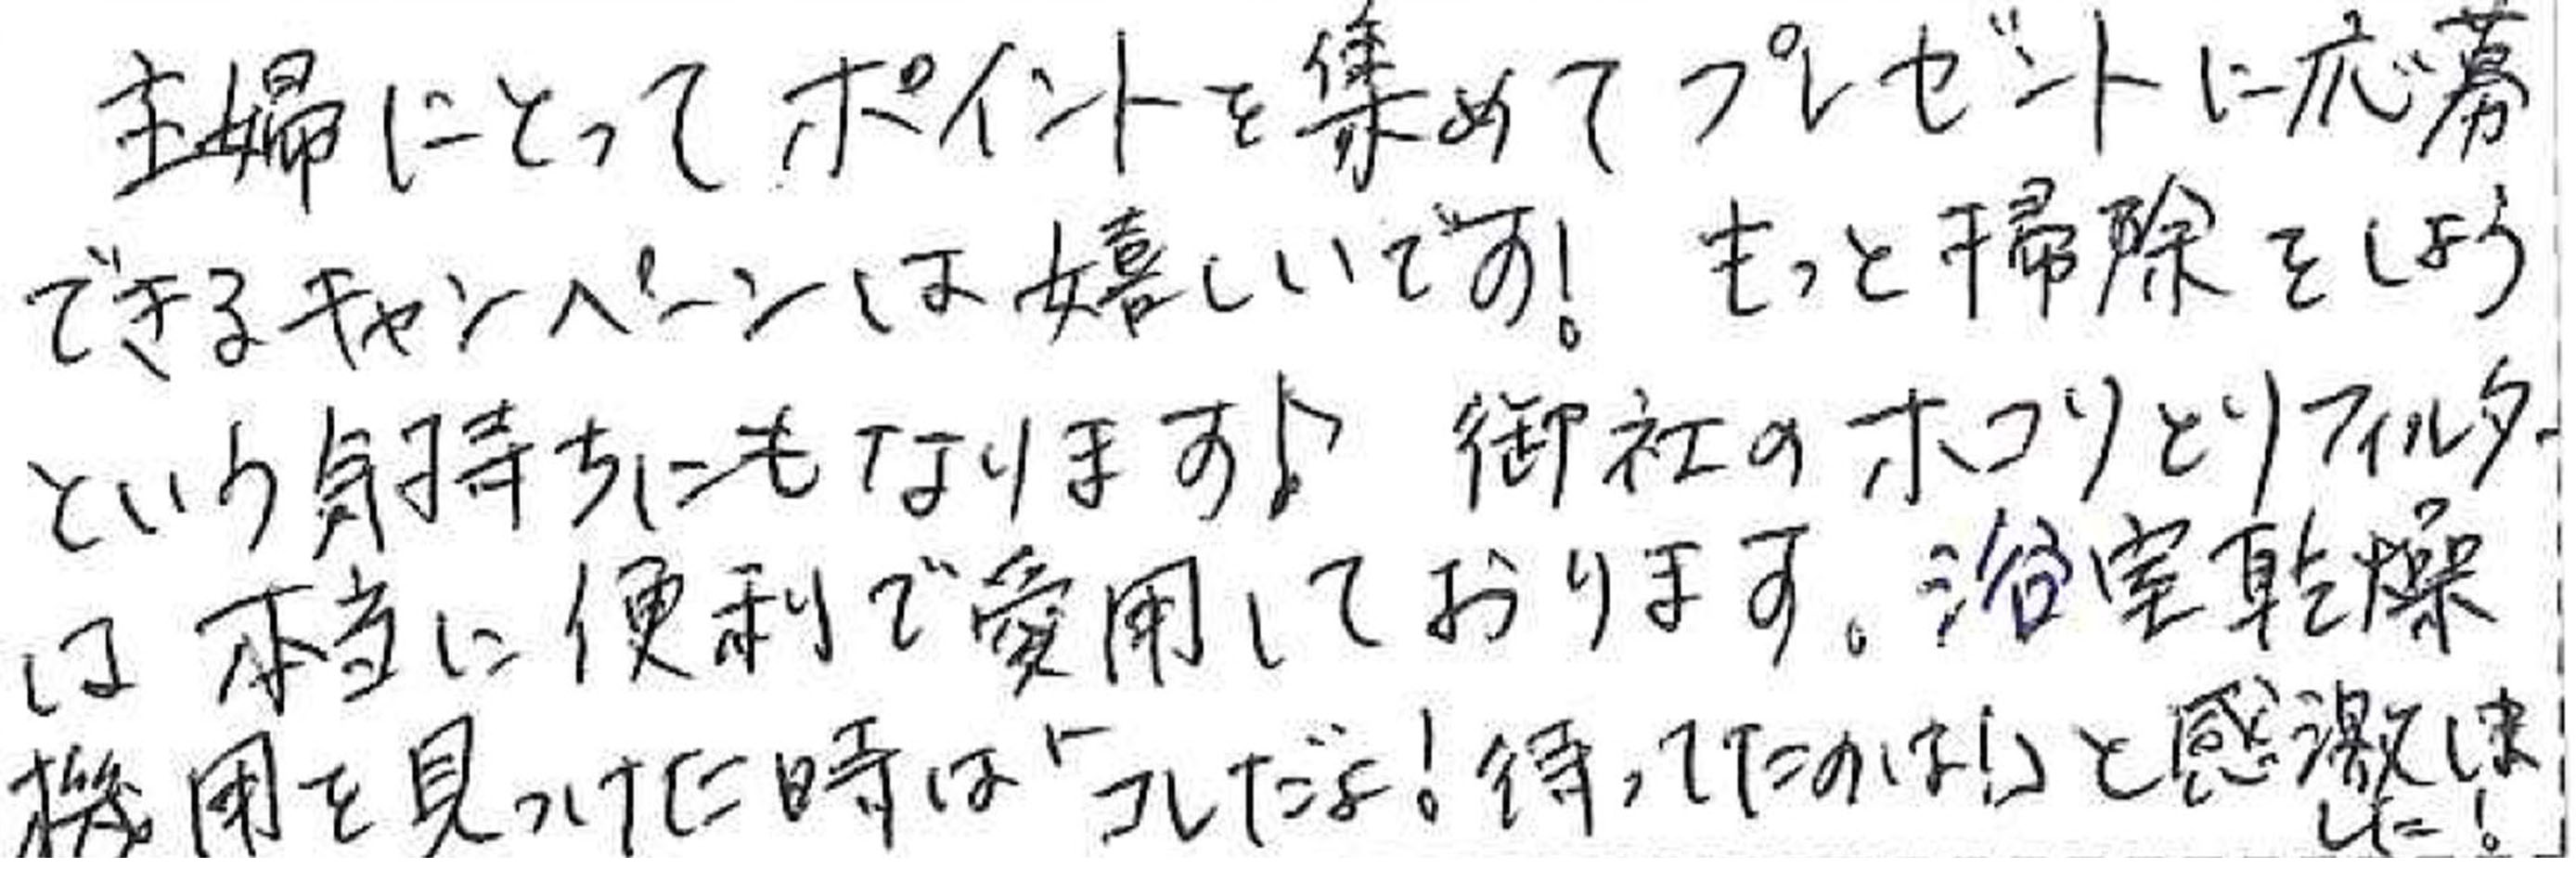 主婦にとってポイントを集めてプレゼントに応募
できるキャンペーンは嬉しいです! もっと掃除をしよう
という気持ちにもなります♪ 御社のホコリとりフィルター
は本当に便利で愛用しております。浴室乾燥
機用を見つけた時は「コレだよ!待ってたのは!」と感激しま
した!